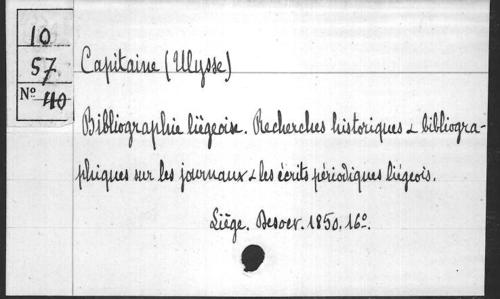 10
57
Nº 40
Capitaine (Ulysse)
Bibliographie liégeoise. Recherches historiques & bibliogra-
phiques sur les journaux & les écrits périodiques liégeois.
Liége. Desoer. 1850. 16º.